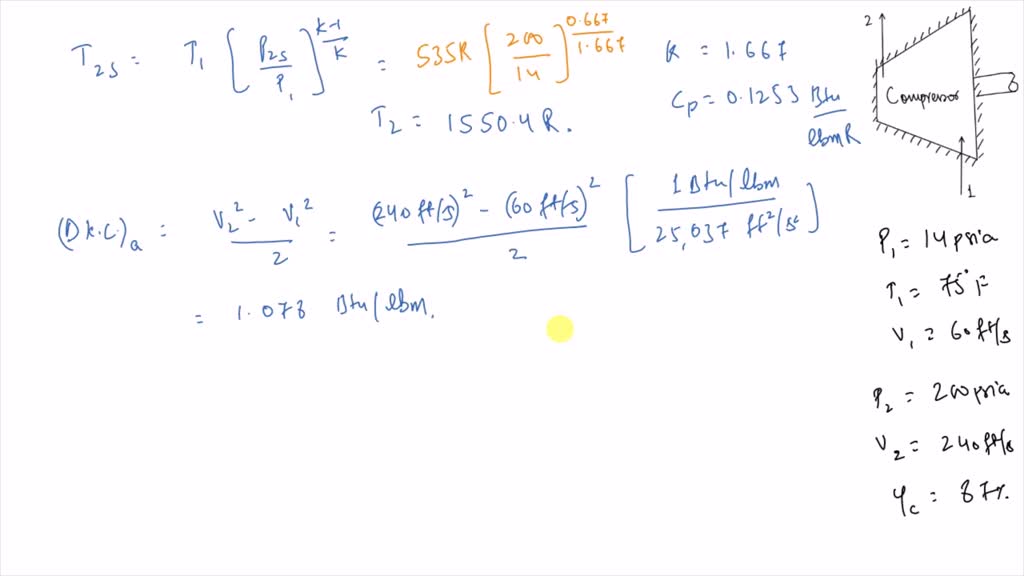 T₂ₛ = T₁ [P₂ₛ/P₁]^(k-1/k) = 535R [200/14]^(0.667/1.667)
k = 1.667
T₂ = 1550.4 R.
Cp = 0.1253 Btu/lbmR
(D k.C.)ₐ = V₂² - V₁² / 2 = (240 ft/s)² - (60 ft/s)² / 2 [1 Btu/lbm / 25,037 ft²/s²]
= 1.078 Btu/lbm.
2
Compressor
1
P₁ = 14 psia
T₁ = 75°F
V₁ = 60 ft/s
P₂ = 200 psia
V₂ = 240 ft/s
η_c = 87%.